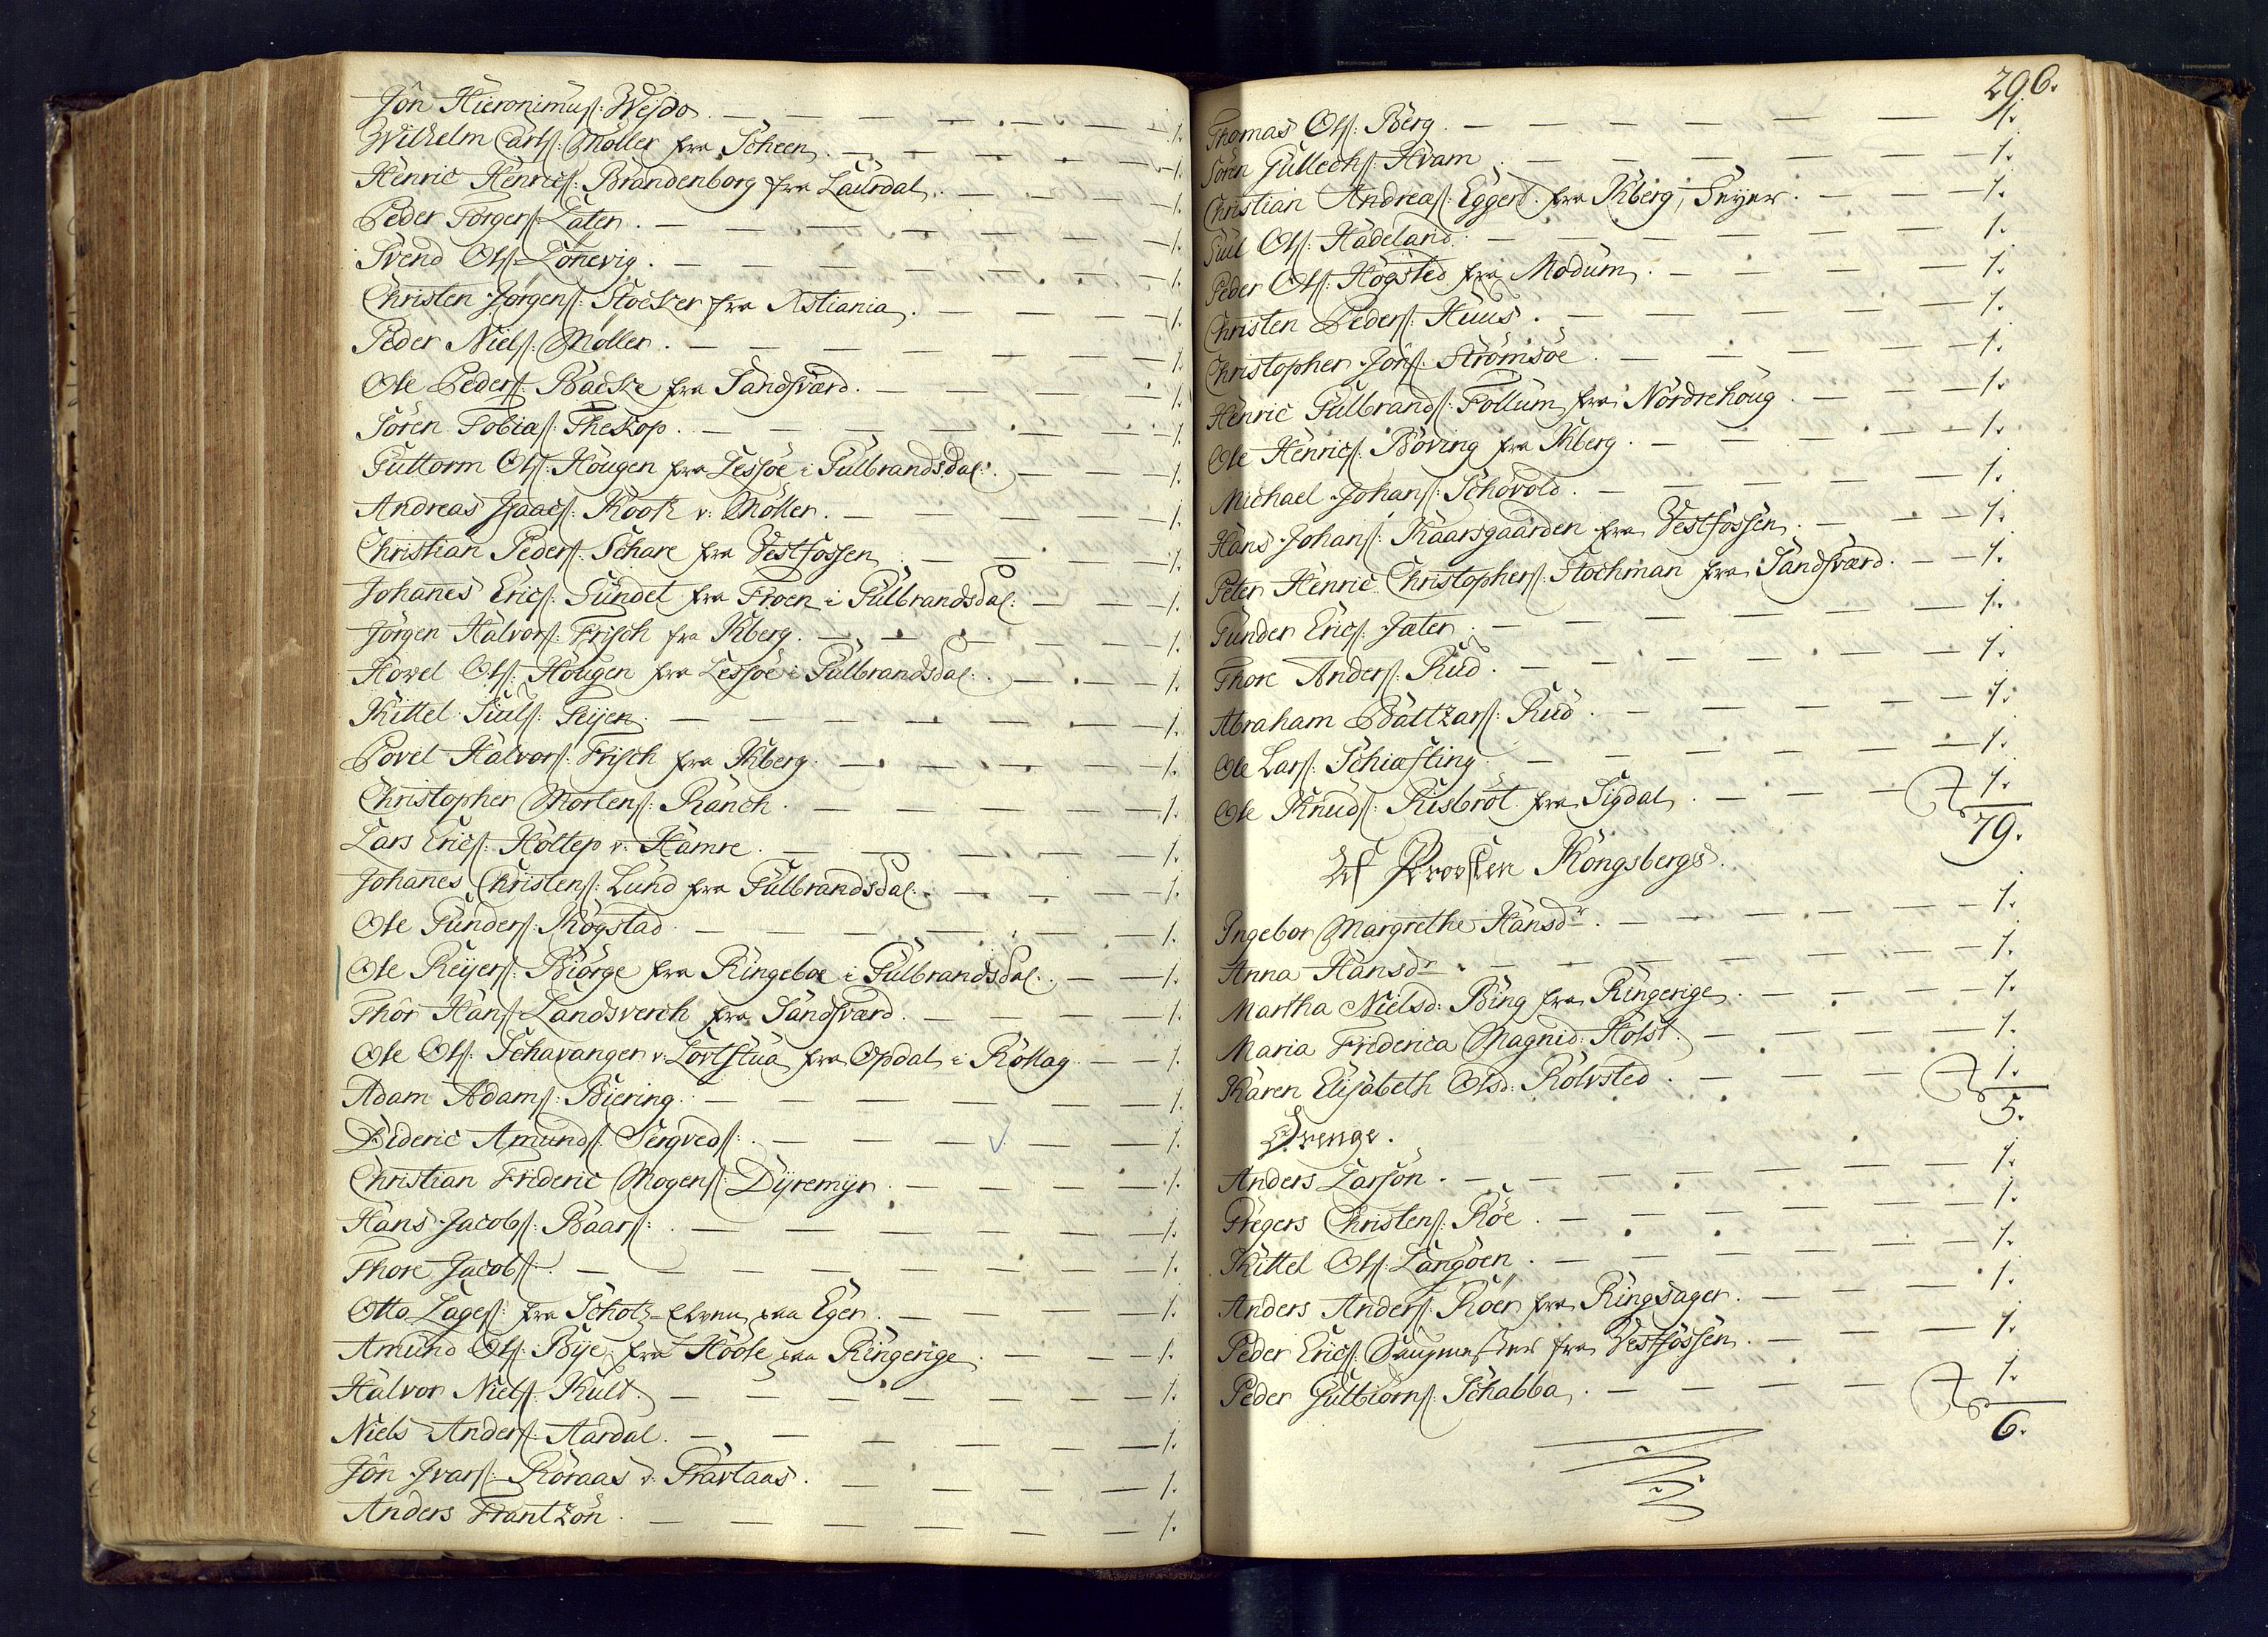 Jôn Hieronimusſ: Wejdo. 1.
Wilhelm Carlſ: Møller fra Scheen. 1.
Henric Henricſ: Brandenborg fra Laurdal. 1.
Peder Torgerſ: Later. 1.
Svend Olſ: Lönevig. 1.
Christen Jørgenſ: Stocker fra Xstiania. 1.
Peder Nielſ: Møller. 1.
Ole Pederſ: Backe fra Sandſværd. 1.
Sören Tobiaſ: Theskop. 1.
Guttorm Olſ: Hougen fra Lessöe i Gulbrandsdal: 1.
Andreas Jsaacſ: Kook v: Møller. 1.
Christian Pederſ: Schare fra Vestfossen 1.
Johanes Ericſ: Sundet fra Froen i Gulbrandsdal: 1.
Jörgen Halvorſ: Frisch fra Kberg. 1.
Hovel Olſ: Hougen fra Lessöe i Gulbrandsdal: 1.
Kittel Siulſ: Feijen. 1.
Povel Halvorſ: Frisch fra Kberg. 1.
Christopher Mortenſ: Ranch. 1.
Lars Ericſ: Holtep v: Hamre. 1.
Johanes Christenſ: Lund fra Gulbrandsdal: 1.
Ole Gunderſ: Kogstad. 1.
Ole Reijerſ: Biørge fra Ringeboe i Gulbrandsdal: 1.
Thôr Hanſ: Landsverch fra Sandſværd. 1.
Ole Olſ: Schavanger v: Lortstua fra Opdal i Rollag 1.
Adam Adamſ: Biering. 1.
Dideric Amundſ: Sergvedſ: 1.
Christian Frideric Mogenſ: Dÿremÿr 1.
Hans Jacobſ: Baarſ: 1.
Thore Jacobſ: 1.
Otto Lageſ: fra Schotz-Elven paa Eger. 1.
Amund Olſ: Bÿe fra Hoole paa Ringerige 1.
Halvor Nielſ: Kult. 1.
Niels Anderſ: Aardal. 1.
Jôn Jvarſ: Roraas v: Gravlaas. 1.
Anders Frantzôn. 1.
296.
Thomas Olſ: Berg. 1.
Sören Gullechſ: Hvam 1.
Christian Andreaſ: Eggert. fra Kberg, Snijer. 1.
Siul Olſ: Hadeland. 1.
Peder Olſ: Høgsted fra Modum. 1.
Christen Pederſ: Huus. 1.
Christopher Jonſ: Strömsöe 1.
Henric Gulbrandſ: Follum fra Nordrehoug 1.
Ole Henricſ: Boving fra Kberg. 1.
Michael Johanſ: Schovold. 1.
Hans Johanſ: Kaarsgaarden fra Vestfossen. 1.
Peter Henric Christopherſ: Stochman fra Sandſværd. 1.
Gunder Ericſ: Jæter. 1.
Thore Anderſ: Rud. 1.
Abraham Baltzarſ: Rud. 1.
Ole Larſ: Schiæfting 1.
Ole Knudſ: Risbröt fra Sigdal. 1.
79.
Kongsbergs.
Ingebor Margrethe Hansdr. 1.
Anna Hansdr. 1.
Martha Nielsd: Bing fra Ringerige. 1.
Maria Friderica Magnid: Holst. 1.
Karen Elisabeth Olsd: Rolvsted. 1.
5.
Drenge.
Anders Larsön. 1.
Gregers Christenſ: Röe. 1.
Kittel Olſ: Langöen. 1.
Anders Anderſ: Röer fra Ringsager. 1.
Peder Ericſ: Saugmester fra Vestfossen. 1.
Peder Gulbiornſ: Schabba. 1.
6.